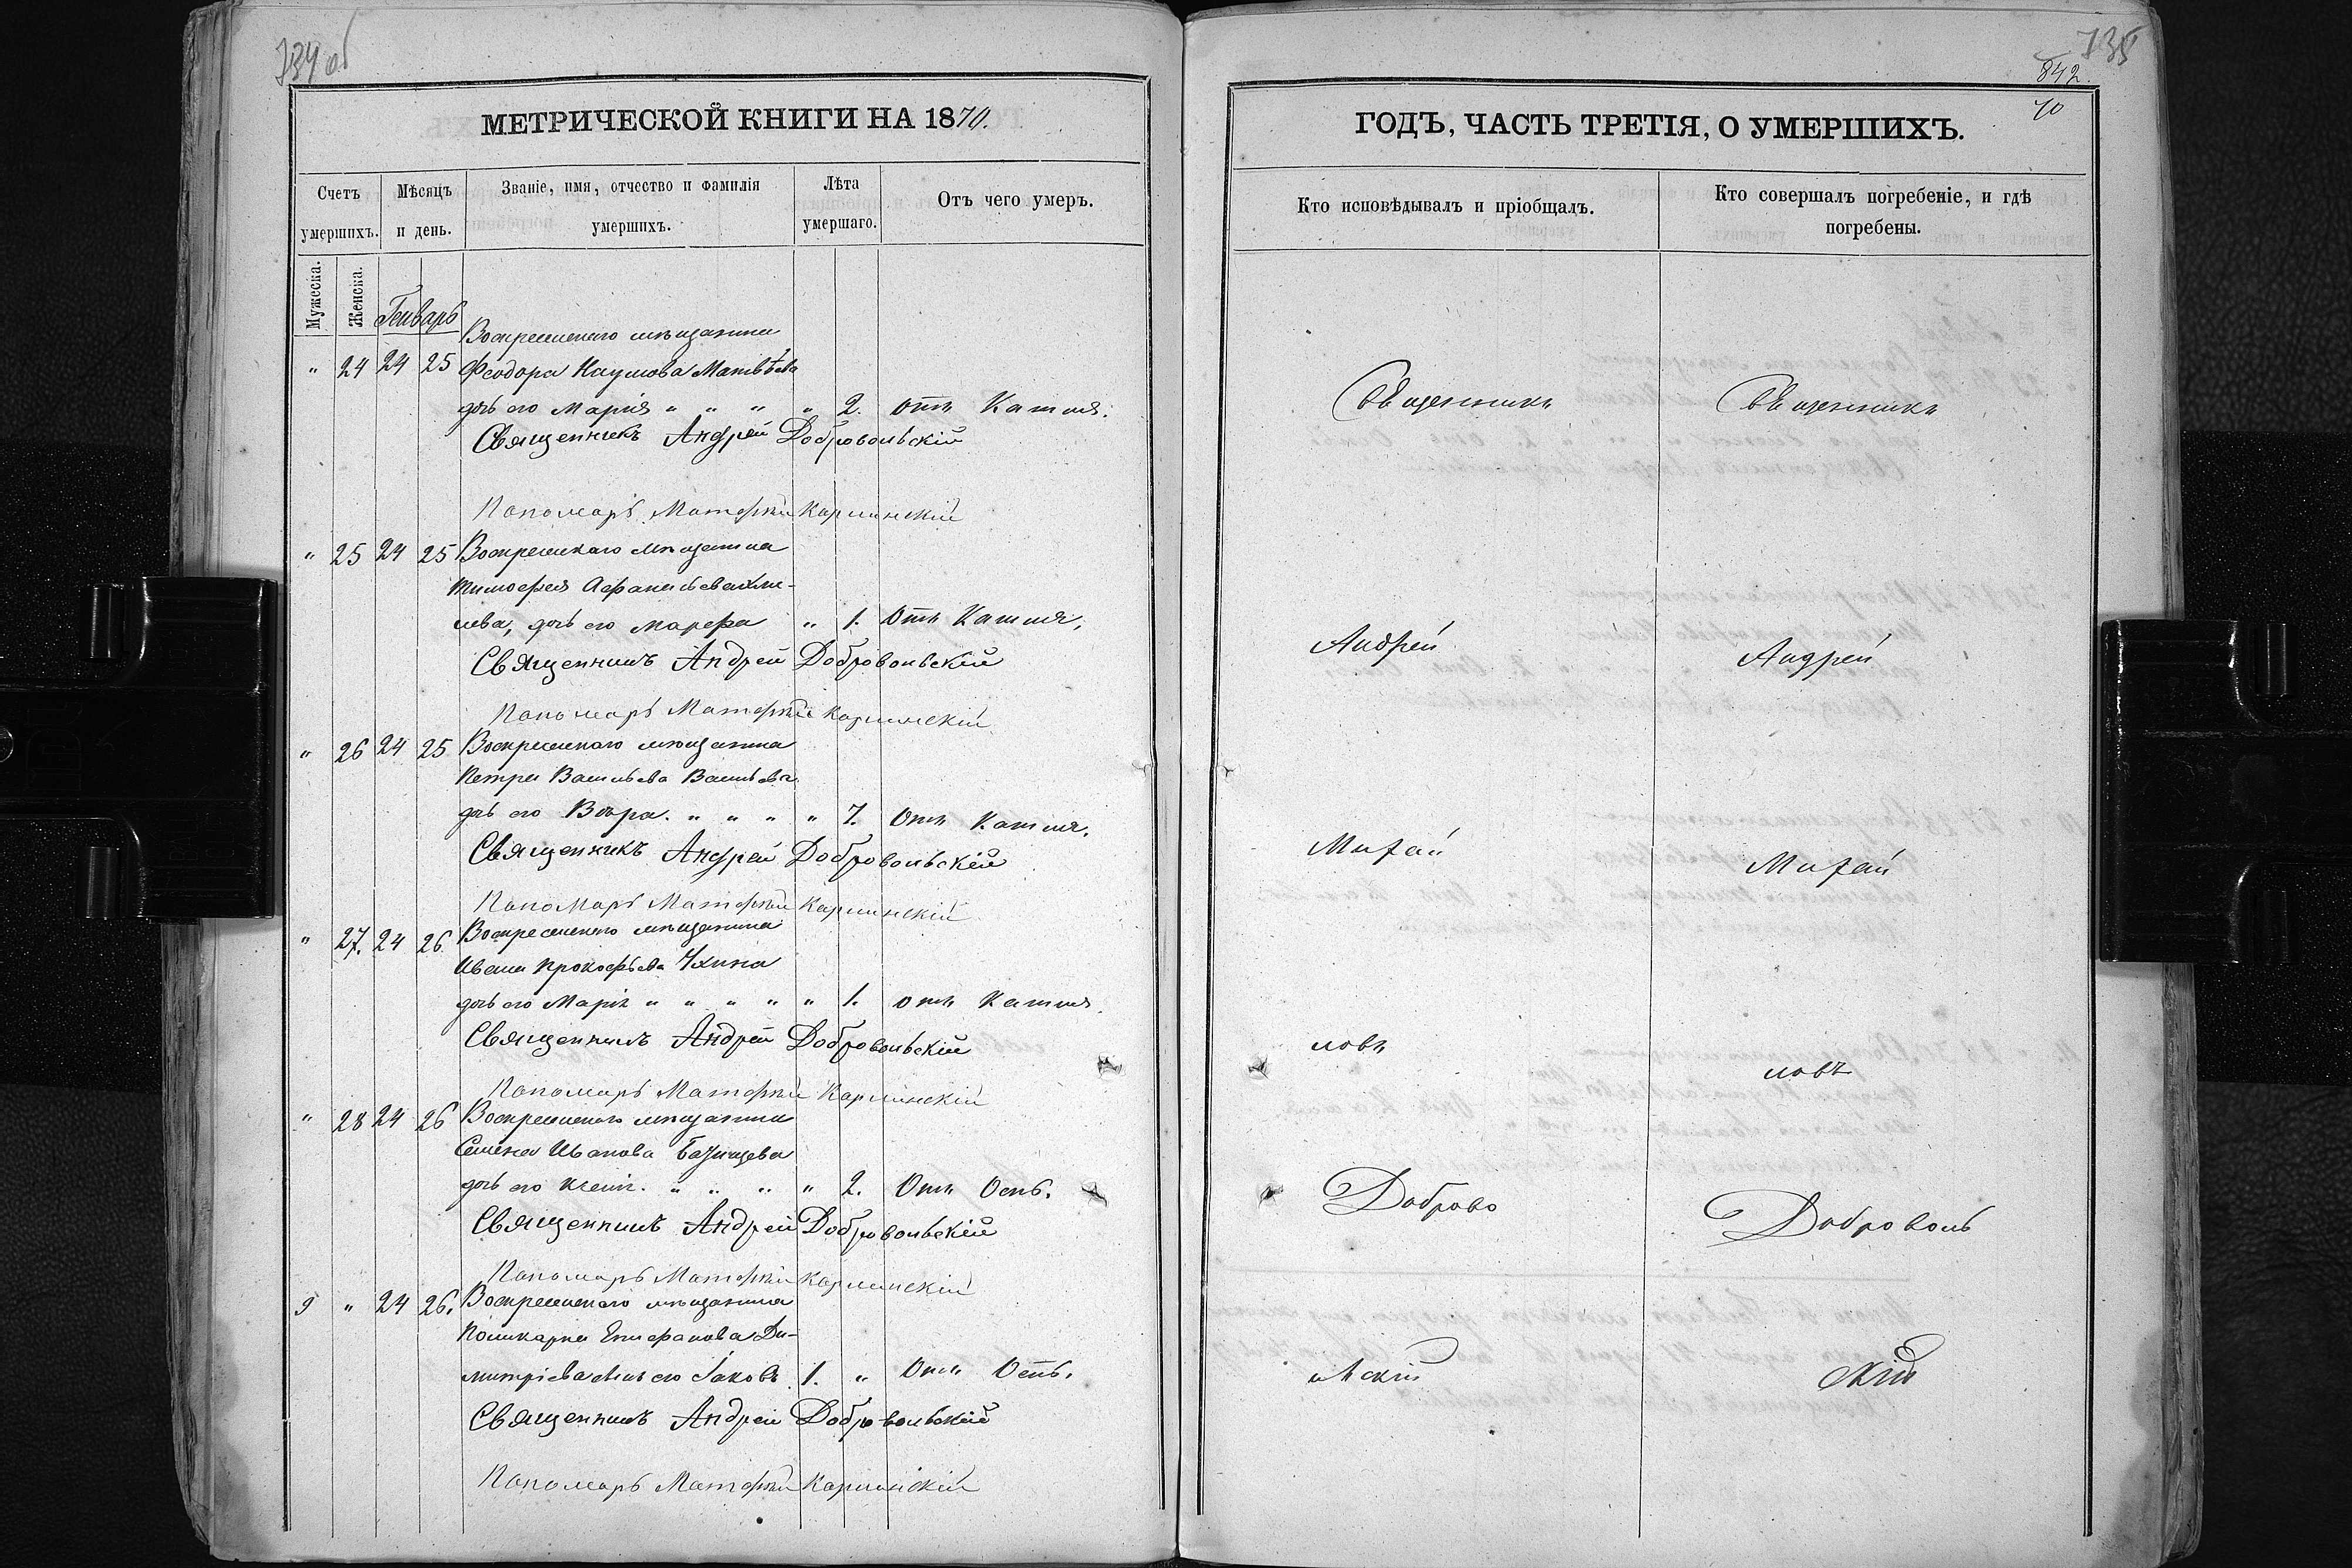 734 об
МЕТРИЧЕСКОЙ КНИГИ НА 1870.
Счетъ умершихъ.
Мѣсяцъ и день.
Званіе, имя, отчество и фамилія умершихъ.
Лѣта умершаго.
Отъ чего умеръ.
Мужеска.
Женска.
Генварь
Воскресенскаго мѣщанина
" 24 24 25 Феодора Наумова Матвѣева
дочь его Марія " " " " 2. отъ Кашля.
Священникъ Андрей Добровольскій
Пономарь Матфей Карлинскій
" 25 24 25 Воскресенскаго мѣщанина
Тимофея Афанасьева
дочь его Марфа " 1. Отъ Кашля.
Священникъ Андрей Добровольскій
Пономарь Матфей Карлинскій
" 26 24 25 Воскресенскаго мѣщанина
Петра Васильева Васильева
дочь его Вѣра. " " " " 7. Отъ Кашля.
Священникъ Андрей Добровольскій
Пономарь Матфей Карлинскій
" 27. 24 26 Воскресенскаго мѣщанина
Ивана Прокофьева
дочь его Марія " " " " " 1. отъ Кашля.
Священникъ Андрей Добровольскій
Пономарь Матфей Карлинскій
" 28 24 26 Воскресенскаго мѣщанина
Семена Иванова
дочь его Ксенія. " " " " 2. Отъ Оспы.
Священникъ Андрей Добровольскій
Пономарь Матфей Карлинскій
9 " 24 26. Воскресенскаго мѣщанина
Поликарпа Епифанова Ди-
митріева сынъ его Іаковъ 1. " Отъ Оспы.
Священникъ Андрей Добровольскій
Пономарь Матфей Карлинскій
735
842.
70
ГОДЪ, ЧАСТЬ ТРЕТІЯ, О УМЕРШИХЪ.
Кто исповѣдывалъ и пріобщалъ.
Кто совершалъ погребеніе, и гдѣ
погребены.
Священникъ
Андрей
Михай
ловъ
Доброво
льскій
Священникъ
Андрей
Михай
ловъ
Доброволь
скій